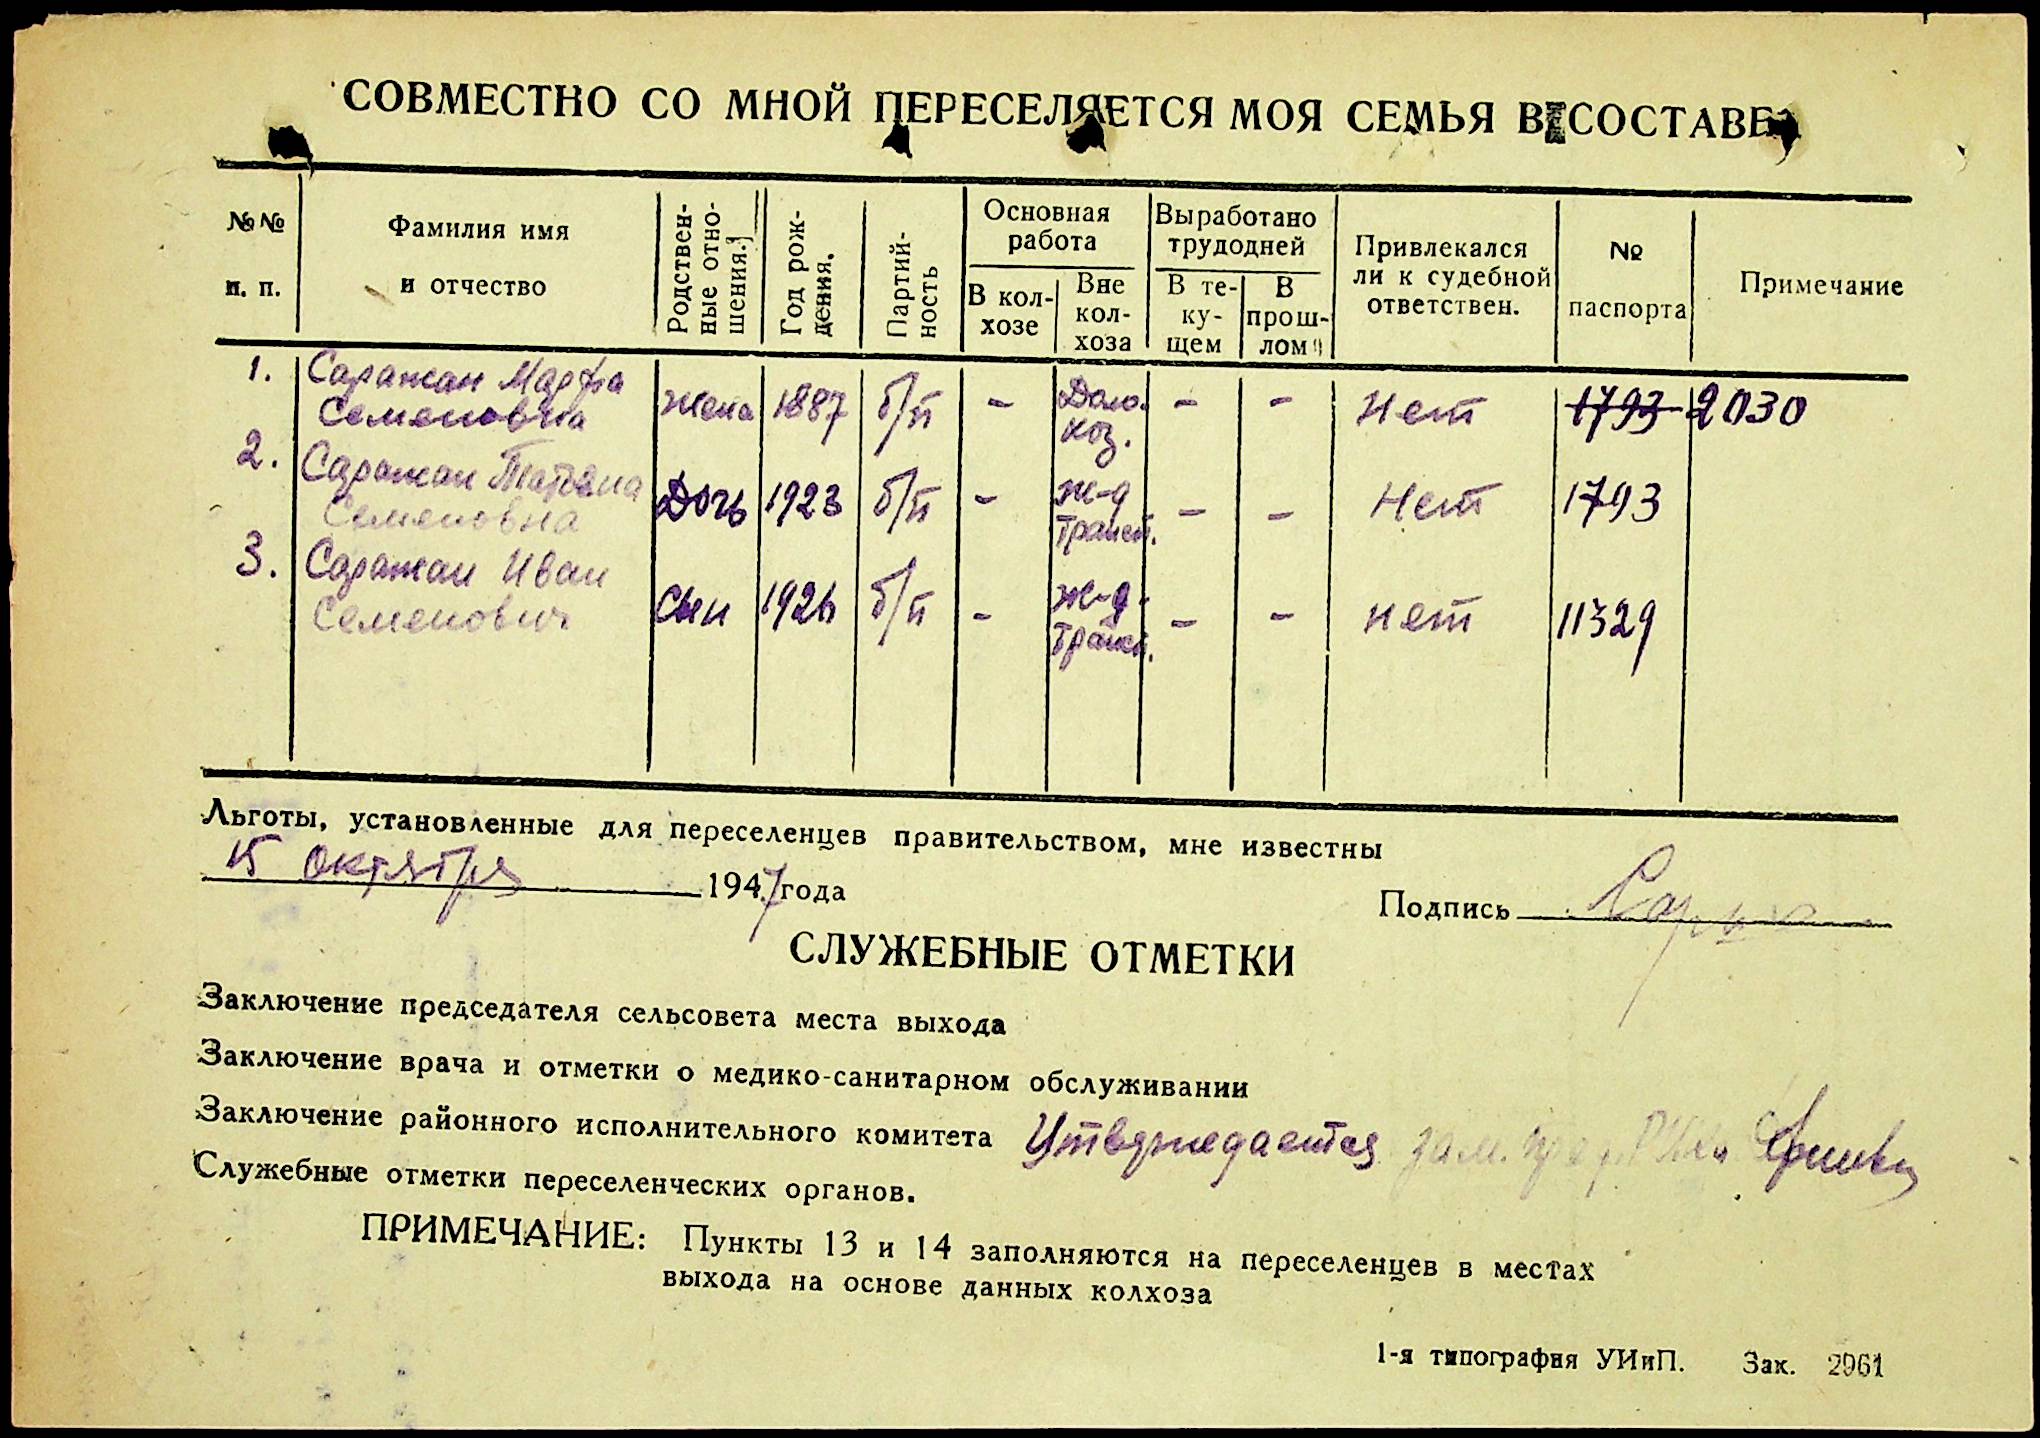 СОВМЕСТНО СО МНОЙ ПЕРЕСЕЛЯЕТСЯ МОЯ СЕМЬЯ В СОСТАВЕ
№№ п. п.
Фамилия имя и отчество
Родственные отношения.
Год рождения.
Партийность
Основная работа
В колхозе
Вне колхоза
Выработано трудодней
В текущем
В прошлом
Привлекался ли к судебной ответствен.
№ паспорта
Примечание
1. Саражан Марфа Семеновна жена 1887 б/п - Домохоз. - - Нет 1793 2030
2. Саражан Татьяна Семеновна Дочь 1923 б/п - ж-д трансп. - - Нет 1793
3. Саражан Иван Семенович сын 1926 б/п - ж-д трансп. - - нет 11329
Льготы, установленные для переселенцев правительством, мне известны
15 октября 1947 года
Подпись
СЛУЖЕБНЫЕ ОТМЕТКИ
Заключение председателя сельсовета места выхода
Заключение врача и отметки о медико-санитарном обслуживании
Заключение районного исполнительного комитета Утверждается зам.
Служебные отметки переселенческих органов.
ПРИМЕЧАНИЕ: Пункты 13 и 14 заполняются на переселенцев в местах
выхода на основе данных колхоза
1-я типография УИиП. Зак. 2961